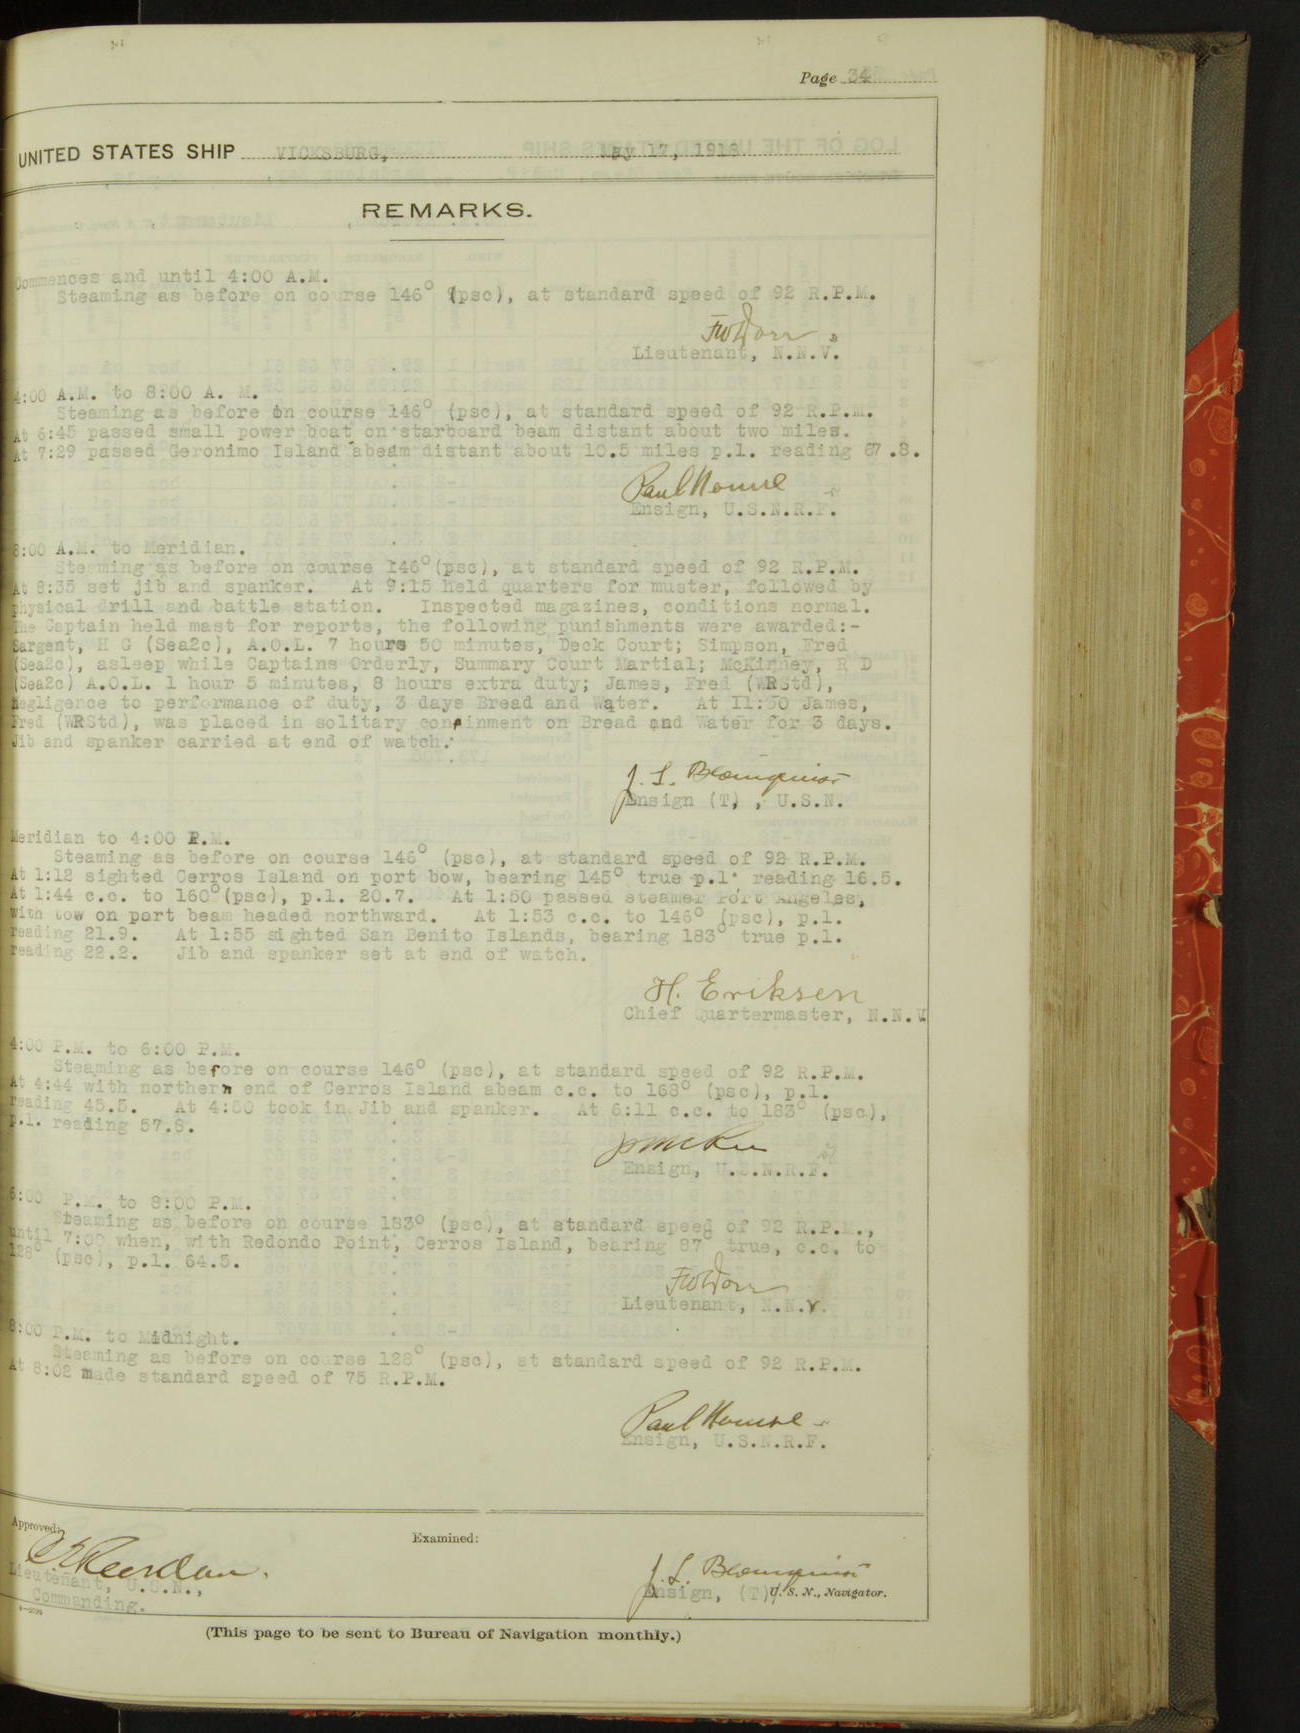 Page 34
UNITED STATES SHIP VICKSBURG, May 17, 1918
REMARKS.
Commences and until 4:00 A.M.
Steaming as before on course 146° (psc), at standard speed of 92 R.P.M.
FWDorr
Lieutenant, N.N.V.
4:00 A.M. to 8:00 A. M.
Steaming as before on course 146° (psc), at standard speed of 92 R.P.M.
At 6:45 passed small power boat on starboard beam distant about two miles.
At 7:29 passed Geronimo Island abeam distant about 10.5 miles p.l. reading 67.8.
Paul
Ensign, U.S.N.R.F.
8:00 A.M. to Meridian.
Steaming as before on course 146°(psc), at standard speed of 92 R.P.M.
At 8:35 set jib and spanker. At 9:15 held quarters for muster, followed by
physical drill and battle station. Inspected magazines, conditions normal.
The Captain held mast for reports, the following punishments were awarded:-
Sargent, H G (Sea2c), A.O.L. 7 hours 50 minutes, Deck Court; Simpson, Fred
(Sea2c), asleep while Captains Orderly, Summary Court Martial; McKinney, R D
(Sea2c) A.O.L. 1 hour 5 minutes, 8 hours extra duty; James, Fred (WRStd),
Negligence to performance of duty, 3 days Bread and Water. At 11:50 James,
Fred (WRStd), was placed in solitary confinment on Bread and Water for 3 days.
Jib and spanker carried at end of watch.
J. L. Blomquist
Ensign (T), U.S.N.
Meridian to 4:00 P.M.
Steaming as before on course 146° (psc), at standard speed of 92 R.P.M.
At 1:12 sighted Cerros Island on port bow, bearing 145° true p.l. reading 16.5.
At 1:44 c.c. to 160°(psc), p.l. 20.7. At 1:50 passed steamer Port Angeles,
with tow on port beam headed northward. At 1:53 c.c. to 146° (psc), p.l.
reading 21.9. At 1:55 sighted San Benito Islands, bearing 183° true p.l.
reading 22.2. Jib and spanker set at end of watch.
H. Eriksen
Chief Quartermaster, N.N.V.
4:00 P.M. to 6:00 P.M.
Steaming as before on course 146° (psc), at standard speed of 92 R.P.M.
At 4:44 with northern end of Cerros Island abeam c.c. to 168° (psc), p.l.
reading 45.5. At 4:50 took in Jib and spanker. At 6:11 c.c. to 183° (psc),
p.l. reading 57.8.
Ensign, U.S.N.R.F.
6:00 P.M. to 8:00 P.M.
Steaming as before on course 183° (psc), at standard speed of 92 R.P.M.,
until 7:00 when, with Redondo Point, Cerros Island, bearing 87° true, c.c. to
128° (psc), p.l. 64.5.
FWDorr
Lieutenant, N.N.V.
8:00 P.M. to Midnight.
Steaming as before on course 128° (psc), at standard speed of 92 R.P.M.
At 8:02 made standard speed of 75 R.P.M.
Paul
Ensign, U.S.N.R.F.
Approved:
Examined:
Lieutenant, U.S.N.,
Commanding.
J. L. Blomquist
Ensign, (T) U. S. N., Navigator.
(This page to be sent to Bureau of Navigation monthly.)